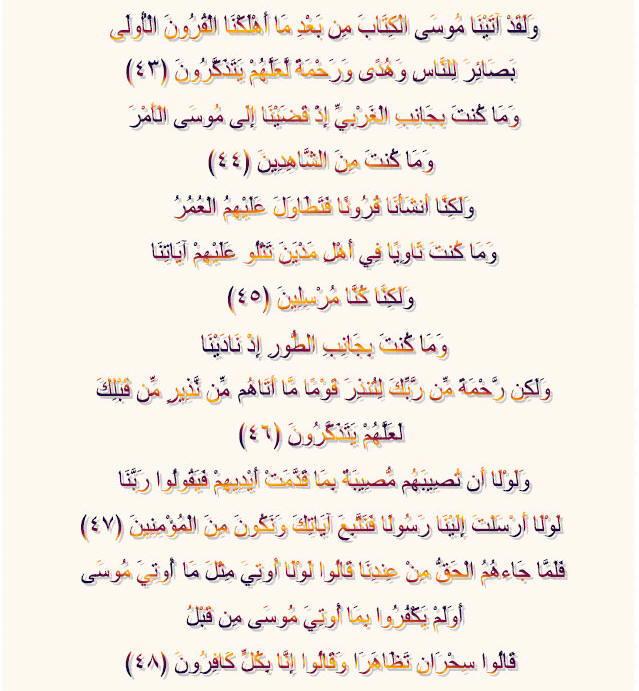 وَلَقَدْ آتَيْنَا مُوسَى الْكِتَابَ مِن بَعْدِ مَا أَهْلَكْنَا الْقُرُونَ الْأُولَى
بَصَائِرَ لِلنَّاسِ وَهُدًى وَرَحْمَةً لَّعَلَّهُمْ يَتَذَكَّرُونَ (٤٣)
وَمَا كُنتَ بِجَانِبِ الْغَرْبِيِّ إِذْ قَضَيْنَا إِلَى مُوسَى الْأَمْرَ
وَمَا كُنتَ مِنَ الشَّاهِدِينَ (٤٤)
وَلَكِنَّا أَنشَأْنَا قُرُونًا فَتَطَاوَلَ عَلَيْهِمُ الْعُمُرُ
وَمَا كُنتَ ثَاوِيًا فِي أَهْلِ مَدْيَنَ تَتْلُو عَلَيْهِمْ آيَاتِنَا
وَلَكِنَّا كُنَّا مُرْسِلِينَ (٤٥)
وَمَا كُنتَ بِجَانِبِ الطُّورِ إِذْ نَادَيْنَا
وَلَكِن رَّحْمَةً مِّن رَّبِّكَ لِتُنذِرَ قَوْمًا مَّا أَتَاهُم مِّن نَّذِيرٍ مِّن قَبْلِكَ
لَعَلَّهُمْ يَتَذَكَّرُونَ (٤٦)
وَلَوْلَا أَن تُصِيبَهُم مُّصِيبَةٌ بِمَا قَدَّمَتْ أَيْدِيهِمْ فَيَقُولُوا رَبَّنَا
لَوْلَا أَرْسَلْتَ إِلَيْنَا رَسُولًا فَنَتَّبِعَ آيَاتِكَ وَنَكُونَ مِنَ الْمُؤْمِنِينَ (٤٧)
فَلَمَّا جَاءهُمُ الْحَقُّ مِنْ عِندِنَا قَالُوا لَوْلَا أُوتِيَ مِثْلَ مَا أُوتِيَ مُوسَى
أَوَلَمْ يَكْفُرُوا بِمَا أُوتِيَ مُوسَى مِن قَبْلُ
قَالُوا سِحْرَانِ تَظَاهَرَا وَقَالُوا إِنَّا بِكُلٍّ كَافِرُونَ (٤٨)